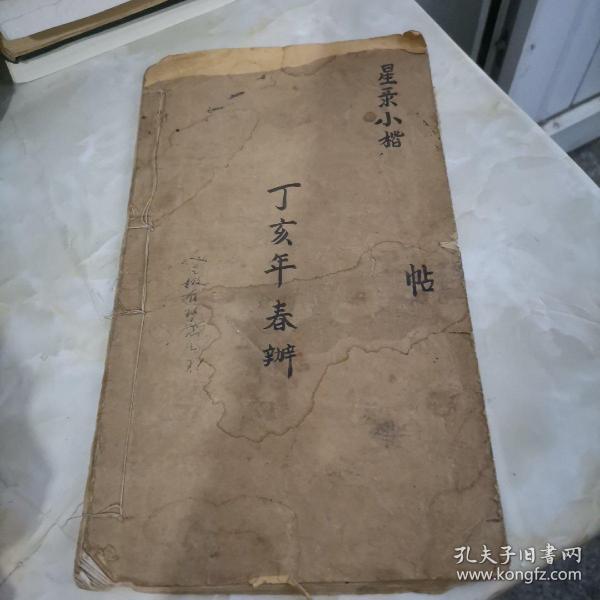 星录小楷
帖
丁亥年春辦
孔夫子旧书网
www.kongfz.com